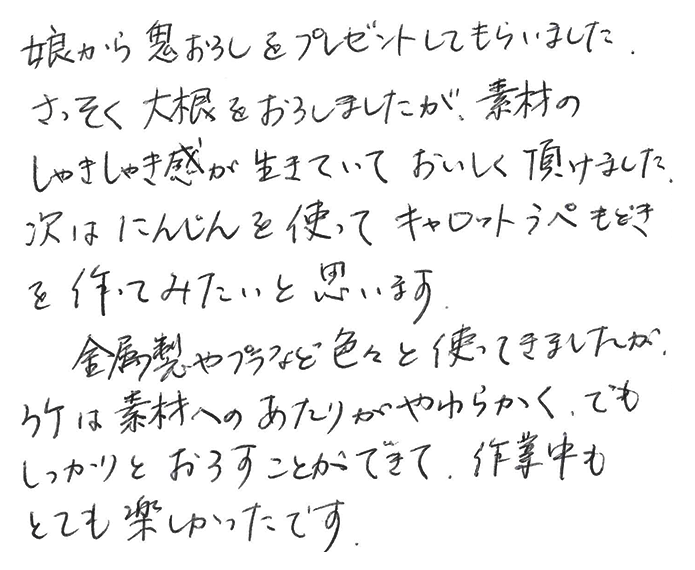 娘から鬼おろしをプレゼントしてもらいました.
さっそく大根をおろしましたが、素材の
しゃきしゃき感が生きていておいしく頂けました.
次はにんじんを使ってキャロットラペもどき
を作ってみたいと思います.
金属製やプラなど色々と使ってきましたが、
竹は素材へのあたりがやわらかく、でも
しっかりとおろすことができて、作業中も
とても楽しかったです.